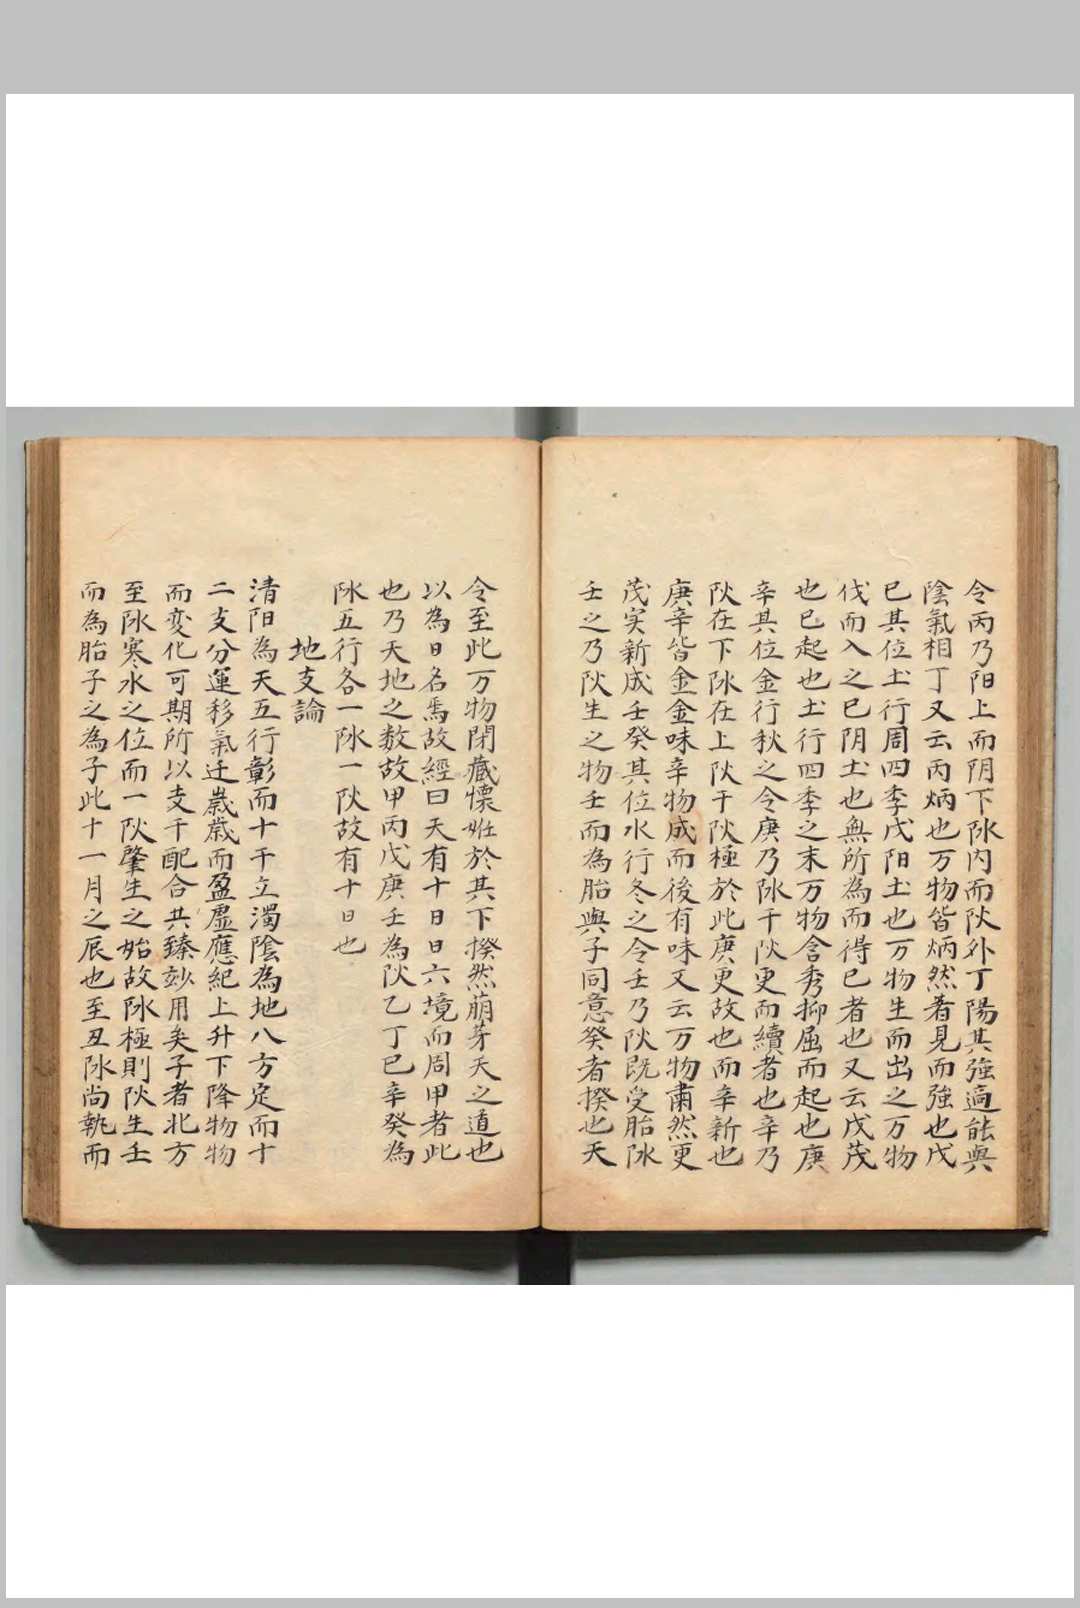 令丙乃阳上而阴下阥内而阦外丁陽其強適能與
陰氣相丁又云丙炳也万物皆炳然著見而強也戊
巳其位土行周四季戊阳土也万物生而出之万物
伐而入之巳阴土也無所為而得巳者也又云戊茂
也巳起也土行四季之末万物含秀抑屈而起也庚
辛其位金行秋之令庚乃阥干阦更而續者也辛乃
阦在下阥在上阦干阦極於此庚更故也而辛新也
庚辛皆金金味辛物成而後有味又云万物肅然更
茂实新成壬癸其位水行冬之令壬乃阦既受胎阥
壬之乃阦生之物壬而為胎與子同意癸者揆也天
令至此万物閉藏懷妊於其下揆然萠芽天之道也
以為日名焉故經曰天有十日日六境而周甲者此
也乃天地之数故甲丙戊庚壬為阦乙丁巳辛癸為
阥五行各一阥一阦故有十日也
地支論
清阳為天五行彰而十干立濁陰為地八方定而十
二支分運移氣迁嵗嵗而盈虛應紀上升下降物物
而変化可期所以支干配合共臻玅用矣子者北方
至阥寒水之位而一阦肇生之始故阥極則阦生壬
而為胎子之為子此十一月之辰也至丑阥尚執而